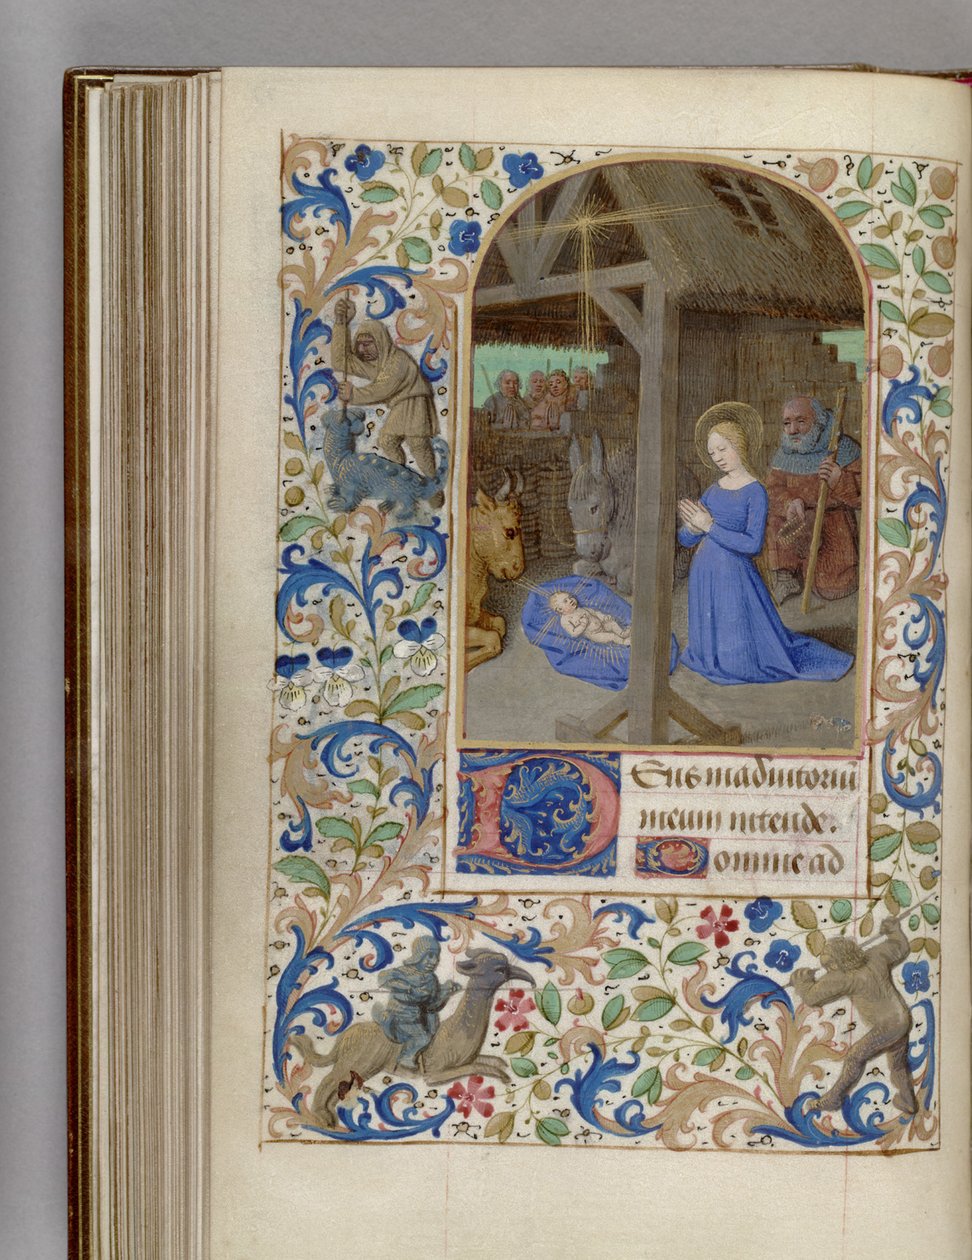 DEus in adiutoriū
meum intende.
Domine ad